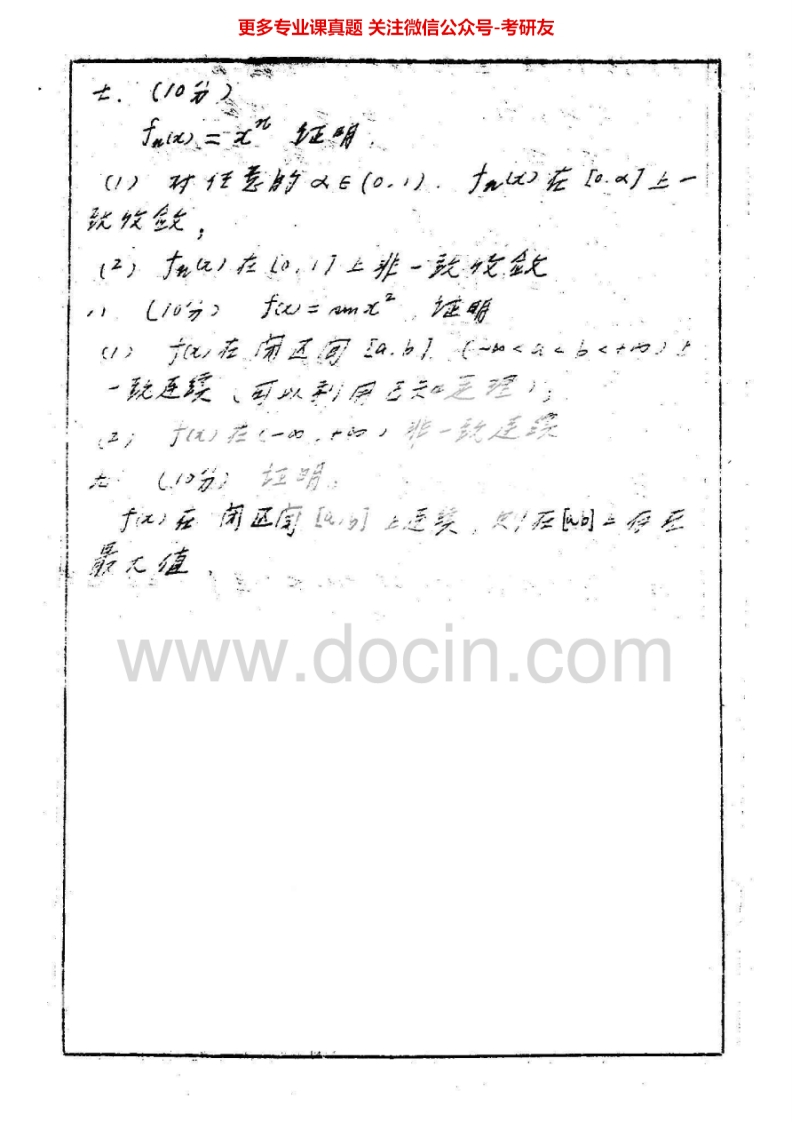 更多专业课真题 关注微信公众号-考研友
七. (10分)
fn(x) = x^n 证明.
(1) 对任意的 α∈(0.1). fn(x) 在 [0.α] 上一
致收敛;
(2) fn(x) 在 [0,1] 上非一致收敛
八 (10分) f(x) = sinx² 证明
(1) f(x) 在闭区间 [a.b] (-∞<a<b<+∞) 上
一致连续 (可以利用已知定理);
(2) f(x) 在 (-∞,+∞) 非一致连续
(10分) 证明:
f(x) 在 闭区间 [a,b] 上连续, 则在[a,b]上存在
最大值.
www.docin.com